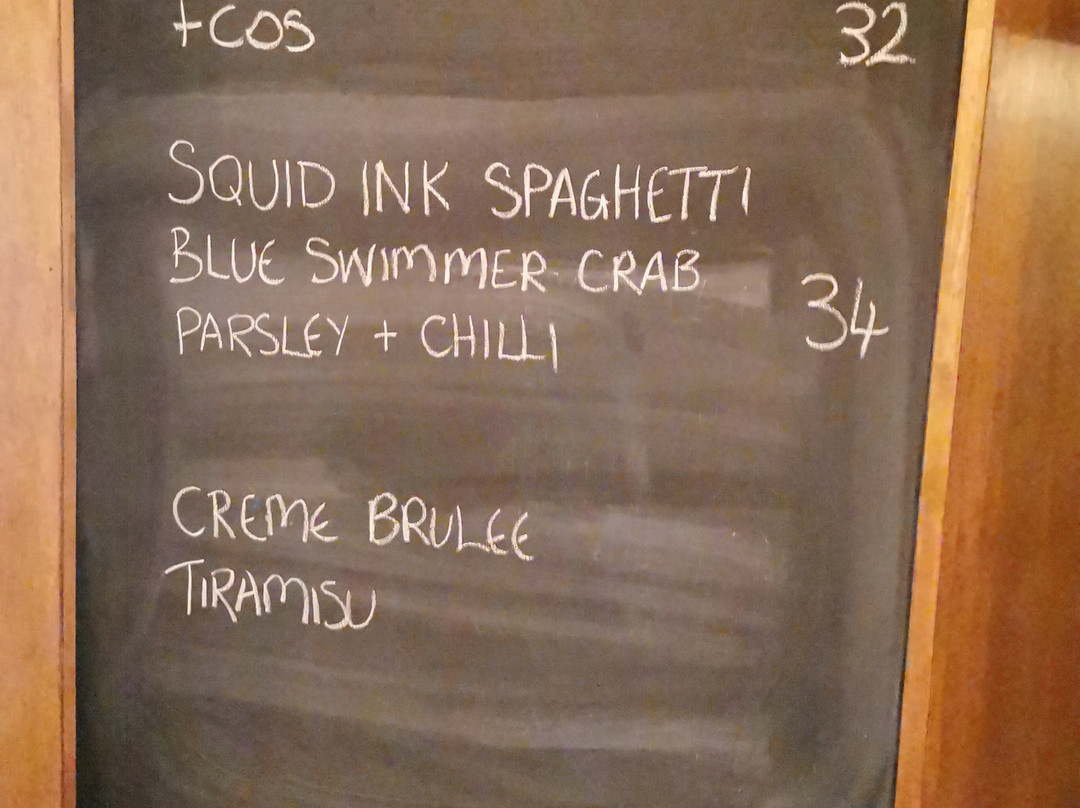 +COS 32
SQUID INK SPAGHETTI
BLUE SWIMMER CRAB
PARSLEY + CHILLI 34
CREME BRULEE
TIRAMISU